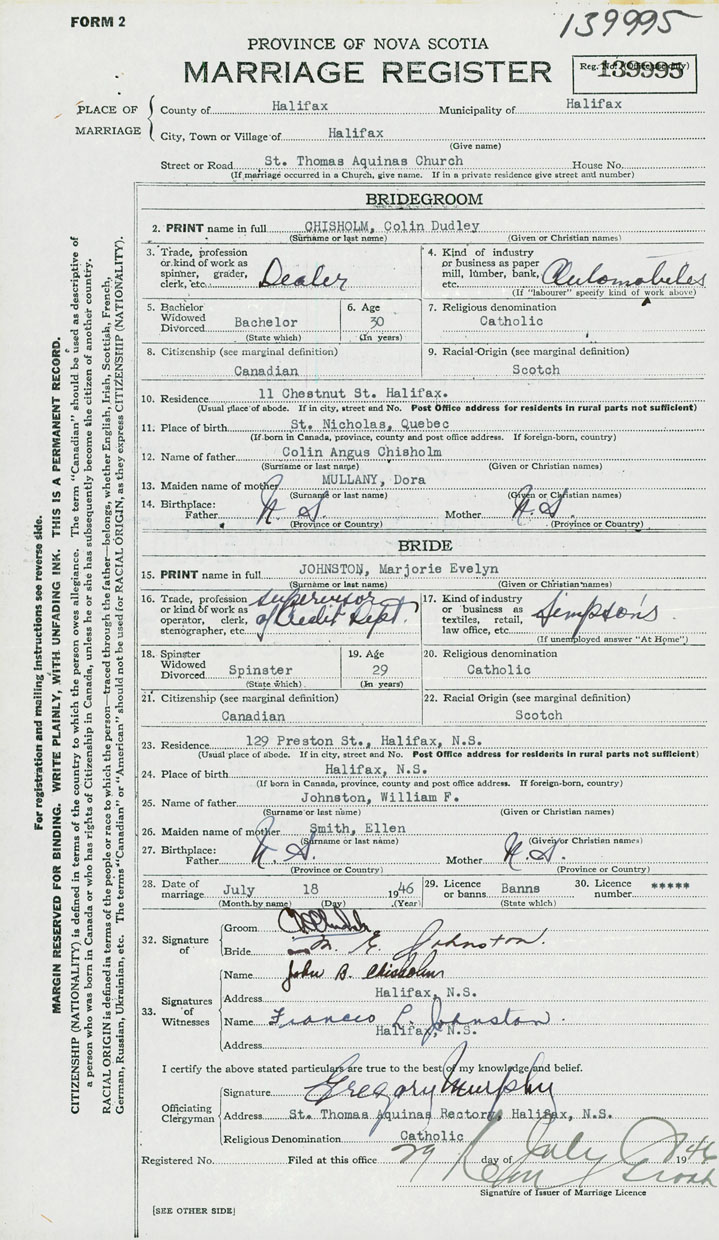 FORM 2
139995
PROVINCE OF NOVA SCOTIA
MARRIAGE REGISTER
139995
PLACE OF MARRIAGE
County of Halifax Municipality of Halifax
City, Town or Village of Halifax
(Give name)
Street or Road St. Thomas Aquinas Church House No.
(If marriage occurred in a Church, give name. If in a private residence give street and number)
BRIDEGROOM
2. PRINT name in full CHISHOLM, Colin Dudley
(Surname or last name) (Given or Christian names)
3. Trade, profession or kind of work as spinner, grader, clerk, etc. Dealer
4. Kind of industry or business as paper mill, lumber, bank, etc. Automobiles
(If "labourer" specify kind of work above)
5. Bachelor Widowed Divorced Bachelor
(State which)
6. Age 30
(In years)
7. Religious denomination
Catholic
8. Citizenship (see marginal definition)
Canadian
9. Racial Origin (see marginal definition)
Scotch
10. Residence 11 Chestnut St. Halifax.
(Usual place of abode. If in city, street and No. Post Office address for residents in rural parts not sufficient)
11. Place of birth St. Nicholas, Quebec
(If born in Canada, province, county and post office address. If foreign-born, country)
12. Name of father Colin Angus Chisholm
(Surname or last name) (Given or Christian names)
13. Maiden name of mother MULLANY, Dora
(Surname or last name) (Given or Christian names)
14. Birthplace: Father N.S. Mother N.S.
(Province or Country) (Province or Country)
BRIDE
15. PRINT name in full JOHNSTON, Marjorie Evelyn
(Surname or last name) (Given or Christian names)
16. Trade, profession or kind of work as operator, clerk, stenographer, etc. supervisor of Credit Dept.
17. Kind of industry or business as textiles, retail, law office, etc. Simpson's
(If unemployed answer "At Home")
18. Spinster Widowed Divorced Spinster
(State which)
19. Age 29
(In years)
20. Religious denomination
Catholic
21. Citizenship (see marginal definition)
Canadian
22. Racial Origin (see marginal definition)
Scotch
23. Residence 129 Preston St., Halifax, N.S.
(Usual place of abode. If in city, street and No. Post Office address for residents in rural parts not sufficient)
24. Place of birth Halifax, N.S.
(If born in Canada, province, county and post office address. If foreign-born, country)
25. Name of father Johnston, William F.
(Surname or last name) (Given or Christian names)
26. Maiden name of mother Smith, Ellen
(Surname or last name) (Given or Christian names)
27. Birthplace: Father N.S. Mother N.S.
(Province or Country) (Province or Country)
28. Date of marriage July 18 1946
(Month by name) (Day) (Year)
29. Licence or banns Banns
(State which)
30. Licence number *****
32. Signature of
Groom
Bride M. E. Johnston.
33. Signatures of Witnesses
Name John B. Chisholm
Address Halifax, N.S.
Name Frances L. Johnston.
Halifax, N.S.
Address
I certify the above stated particulars are true to the best of my knowledge and belief.
Officiating Clergyman
Signature Gregory Murphy
Address St. Thomas Aquinas Rectory Halifax, N.S.
Religious Denomination Catholic
Registered No. Filed at this office 29 day of July 1946
Signature of Issuer of Marriage Licence
[SEE OTHER SIDE]
For registration and mailing instructions see reverse side.
MARGIN RESERVED FOR BINDING. WRITE PLAINLY, WITH UNFADING INK. THIS IS A PERMANENT RECORD.
CITIZENSHIP (NATIONALITY) is defined in terms of the country to which the person owes allegiance. The term "Canadian" should be used as descriptive of
a person who was born in Canada or who has rights of Citizenship in Canada, unless he or she has subsequently become the citizen of another country.
RACIAL ORIGIN is defined in terms of the people or race to which the person—traced through the father—belongs, whether English, Irish, Scottish, French,
German, Russian, Ukrainian, etc. The terms "Canadian" or "American" should not be used for RACIAL ORIGIN, as they express CITIZENSHIP (NATIONALITY).